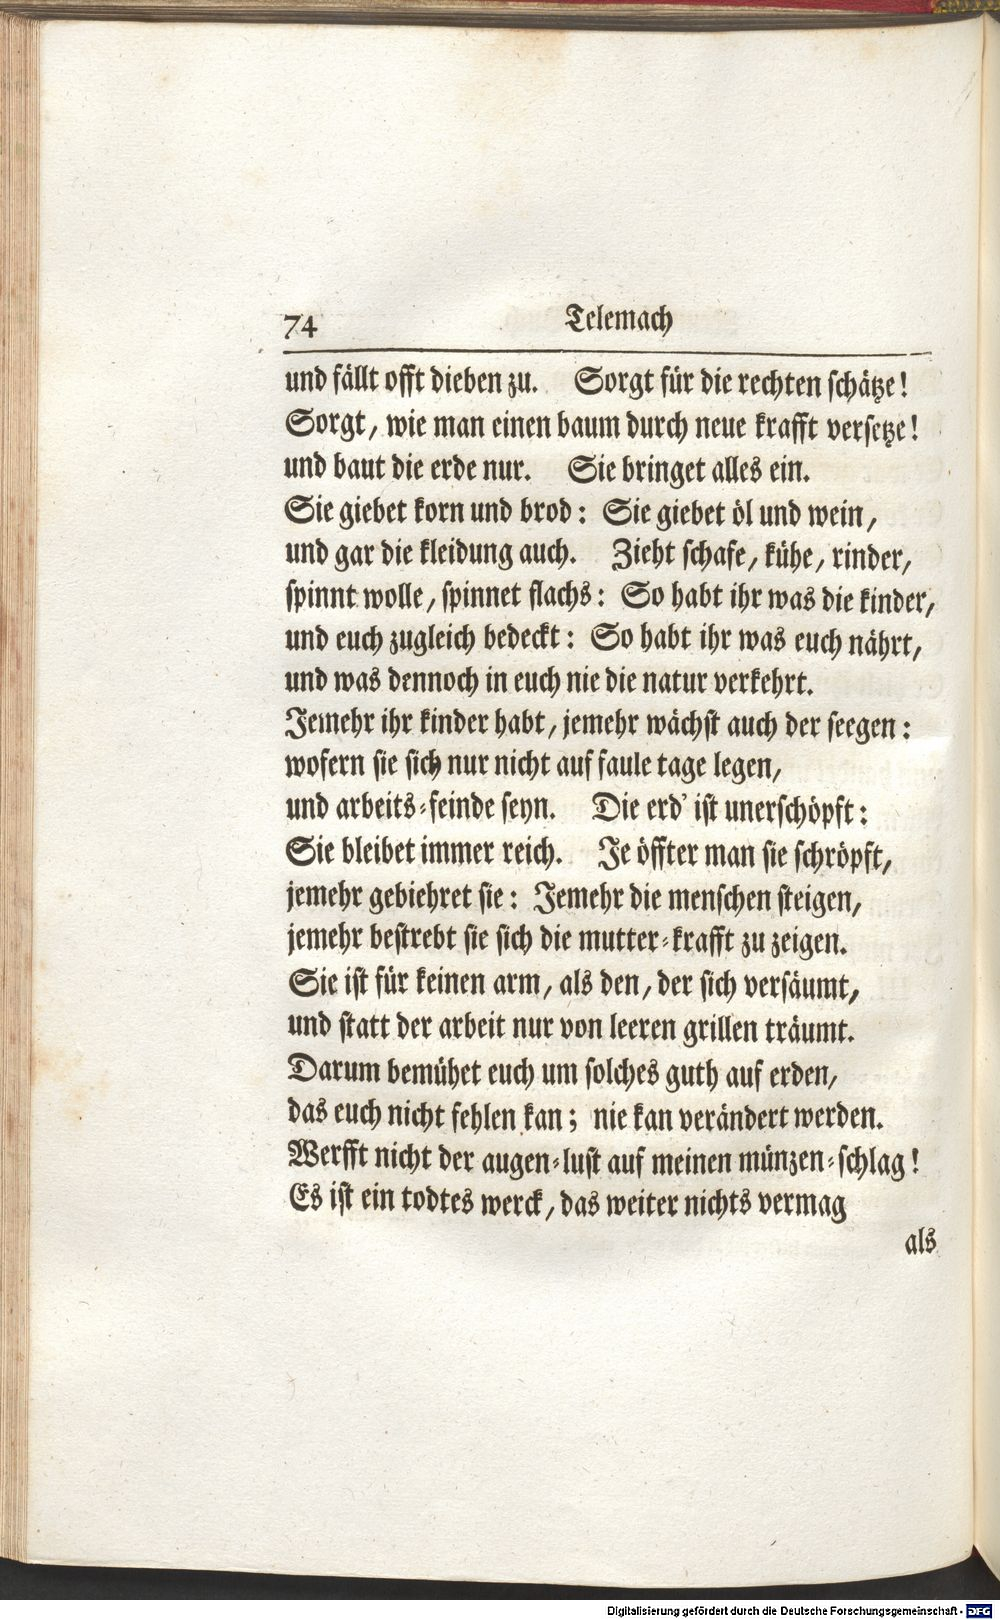 74 Telemach
und fällt offt dieben zu. Sorgt für die rechten schätze!
Sorgt, wie man einen baum durch neue krafft versetze!
und baut die erde nur. Sie bringet alles ein.
Sie giebet korn und brod: Sie giebet öl und wein,
und gar die kleidung auch. Zieht schafe, kühe, rinder,
spinnt wolle, spinnet flachs: So habt ihr was die kinder,
und euch zugleich bedeckt: So habt ihr was euch nährt,
und was dennoch in euch nie die natur verkehrt.
Jemehr ihr kinder habt, jemehr wächst auch der seegen:
wofern sie sich nur nicht auf faule tage legen,
und arbeits-feinde seyn. Die erd' ist unerschöpft:
Sie bleibet immer reich. Je öffter man sie schröpft,
jemehr gebiehret sie: Jemehr die menschen steigen,
jemehr bestrebt sie sich die mutter-krafft zu zeigen.
Sie ist für keinen arm, als den, der sich versäumt,
und statt der arbeit nur von leeren grillen träumt.
Darum bemühet euch um solches guth auf erden,
das euch nicht fehlen kan; nie kan verändert werden.
Werfft nicht der augen-lust auf meinen münzen-schlag!
Es ist ein todtes werck, das weiter nichts vermag
als
Digitalisierung gefördert durch die Deutsche Forschungsgemeinschaft - DFG